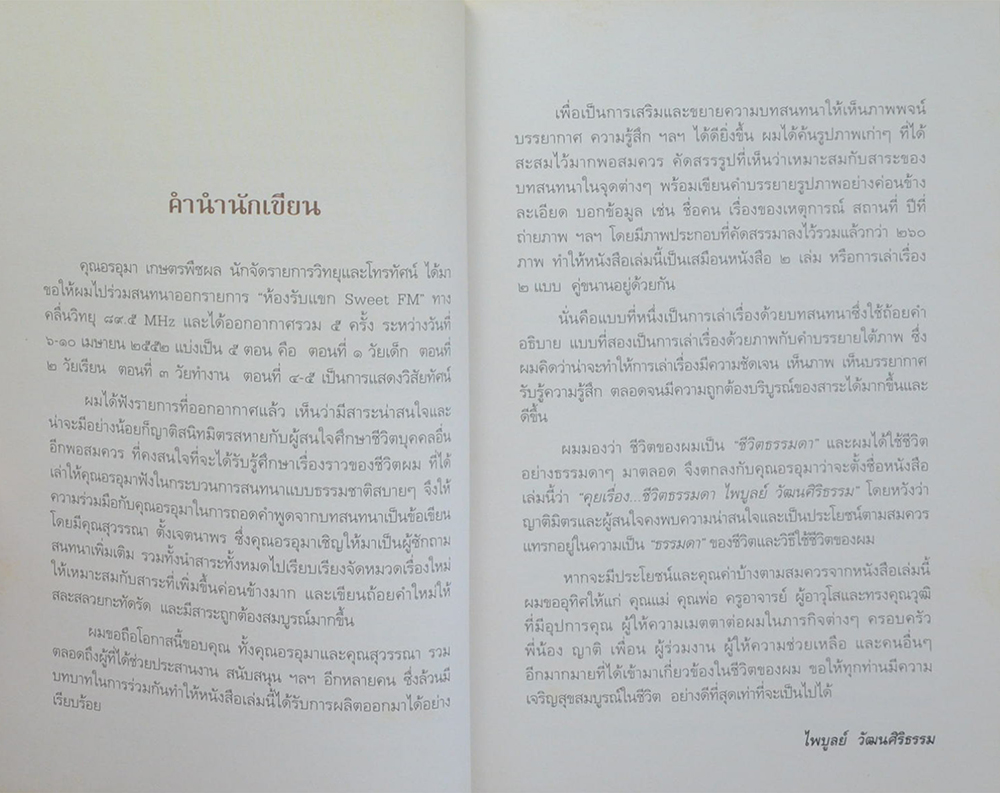 คำนำนักเขียน
คุณอรอุมา เกษตรพืชผล นักจัดรายการวิทยุและโทรทัศน์ ได้มา
ขอให้ผมไปร่วมสนทนาออกรายการ “ห้องรับแขก Sweet FM” ทาง
คลื่นวิทยุ ๘๙.๕ MHz และได้ออกอากาศรวม ๕ ครั้ง ระหว่างวันที่
๖-๑๐ เมษายน ๒๕๕๒ แบ่งเป็น ๕ ตอน คือ ตอนที่ ๑ วัยเด็ก ตอนที่
๒ วัยเรียน ตอนที่ ๓ วัยทำงาน ตอนที่ ๔-๕ เป็นการแสดงวิสัยทัศน์
ผมได้ฟังรายการที่ออกอากาศแล้ว เห็นว่ามีสาระน่าสนใจและ
น่าจะมีอย่างน้อยก็ญาติสนิทมิตรสหายกับผู้สนใจศึกษาชีวิตบุคคลอื่น
อีกพอสมควร ที่คงสนใจที่จะได้รับรู้ศึกษาเรื่องราวของชีวิตผม ที่ได้
เล่าให้คุณอรอุมาฟังในกระบวนการสนทนาแบบธรรมชาติสบายๆ จึงให้
ความร่วมมือกับคุณอรอุมาในการถอดคำพูดจากบทสนทนาเป็นข้อเขียน
โดยมีคุณสุวรรณา ตั้งเจตนาพร ซึ่งคุณอรอุมาเชิญให้มาเป็นผู้ซักถาม
สนทนาเพิ่มเติม รวมทั้งนำสาระทั้งหมดไปเรียบเรียงจัดหมวดเรื่องใหม่
ให้เหมาะสมกับสาระที่เพิ่มขึ้นค่อนข้างมาก และเขียนถ้อยคำใหม่ให้
สละสลวยกะทัดรัด และมีสาระถูกต้องสมบูรณ์มากขึ้น
ผมขอถือโอกาสนี้ขอบคุณ ทั้งคุณอรอุมาและคุณสุวรรณา รวม
ตลอดถึงผู้ที่ได้ช่วยประสานงาน สนับสนุน ฯลฯ อีกหลายคน ซึ่งล้วนมี
บทบาทในการร่วมกันทำให้หนังสือเล่มนี้ได้รับการผลิตออกมาได้อย่าง
เรียบร้อย
เพื่อเป็นการเสริมและขยายความบทสนทนาให้เห็นภาพพจน์
บรรยากาศ ความรู้สึก ฯลฯ ได้ดียิ่งขึ้น ผมได้ค้นรูปภาพเก่าๆ ที่ได้
สะสมไว้มากพอสมควร คัดสรรรูปที่เห็นว่าเหมาะสมกับสาระของ
บทสนทนาในจุดต่างๆ พร้อมเขียนคำบรรยายรูปภาพอย่างค่อนข้าง
ละเอียด บอกข้อมูล เช่น ชื่อคน เรื่องของเหตุการณ์ สถานที่ ปีที่
ถ่ายภาพ ฯลฯ โดยมีภาพประกอบที่คัดสรรมาลงไว้รวมแล้วกว่า ๒๖๐
ภาพ ทำให้หนังสือเล่มนี้เป็นเสมือนหนังสือ ๒ เล่ม หรือการเล่าเรื่อง
๒ แบบ คู่ขนานอยู่ด้วยกัน
นั่นคือแบบที่หนึ่งเป็นการเล่าเรื่องด้วยบทสนทนาซึ่งใช้ถ้อยคำ
อธิบาย แบบที่สองเป็นการเล่าเรื่องด้วยภาพกับคำบรรยายใต้ภาพ ซึ่ง
ผมคิดว่าน่าจะทำให้การเล่าเรื่องมีความชัดเจน เห็นภาพ เห็นบรรยากาศ
รับรู้ความรู้สึก ตลอดจนมีความถูกต้องบริบูรณ์ของสาระได้มากขึ้นและ
ดีขึ้น
ผมมองว่า ชีวิตของผมเป็น “ชีวิตธรรมดา” และผมได้ใช้ชีวิต
อย่างธรรมดาๆ มาตลอด จึงตกลงกับคุณอรอุมาว่าจะตั้งชื่อหนังสือ
เล่มนี้ว่า “คุยเรื่อง...ชีวิตธรรมดา ไพบูลย์ วัฒนศิริธรรม” โดยหวังว่า
ญาติมิตรและผู้สนใจคงพบความน่าสนใจและเป็นประโยชน์ตามสมควร
แทรกอยู่ในความเป็น “ธรรมดา” ของชีวิตและวิธีใช้ชีวิตของผม
หากจะมีประโยชน์และคุณค่าบ้างตามสมควรจากหนังสือเล่มนี้
ผมขออุทิศให้แก่ คุณแม่ คุณพ่อ ครูอาจารย์ ผู้อาวุโสและทรงคุณวุฒิ
ที่มีอุปการคุณ ผู้ให้ความเมตตาต่อผมในภารกิจต่างๆ ครอบครัว
พี่น้อง ญาติ เพื่อน ผู้ร่วมงาน ผู้ให้ความช่วยเหลือ และคนอื่นๆ
อีกมากมายที่ได้เข้ามาเกี่ยวข้องในชีวิตของผม ขอให้ทุกท่านมีความ
เจริญสุขสมบูรณ์ในชีวิต อย่างดีที่สุดเท่าที่จะเป็นไปได้
ไพบูลย์ วัฒนศิริธรรม